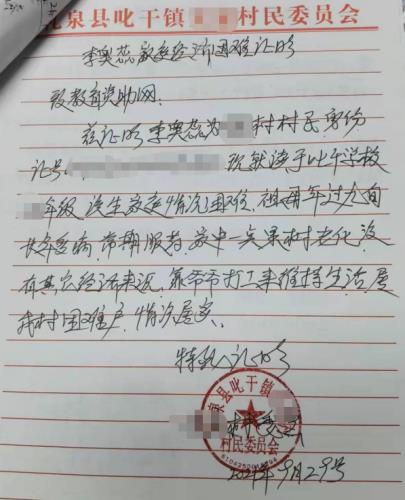 乾泉县叱干镇 村民委员会
李奥蕊家庭经济困难证明
致教育资助网:
兹证明李奥蕊为 村村民身份
证号: 现就读于叱干学校
年级,该生家庭情况困难,祖母年过九旬
长年患病,常期服药,家中一点果树老化,没
有其它经济来源,靠爷爷打工来维持生活,属
我村困难户,情况属实、
特此证明
泉县叱干镇
村民委员会
2021年9月29号